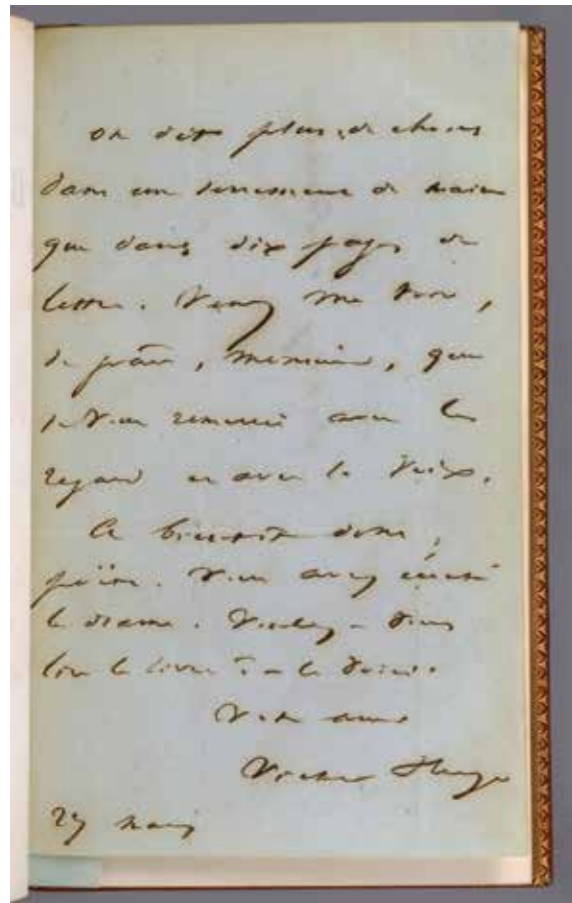 On dit plus de choses
dans un serrement de main
que dans dix pages de
lettre. Venez me voir,
je vous prie, monsieur, que
je vous remercie avec le
regard et avec la voix.
A bientôt donc,
poëte. Vous avez écouté
le drame. Voulez-vous
lire le livre ? - le voici.
Votre ami
Victor Hugo
27 mars